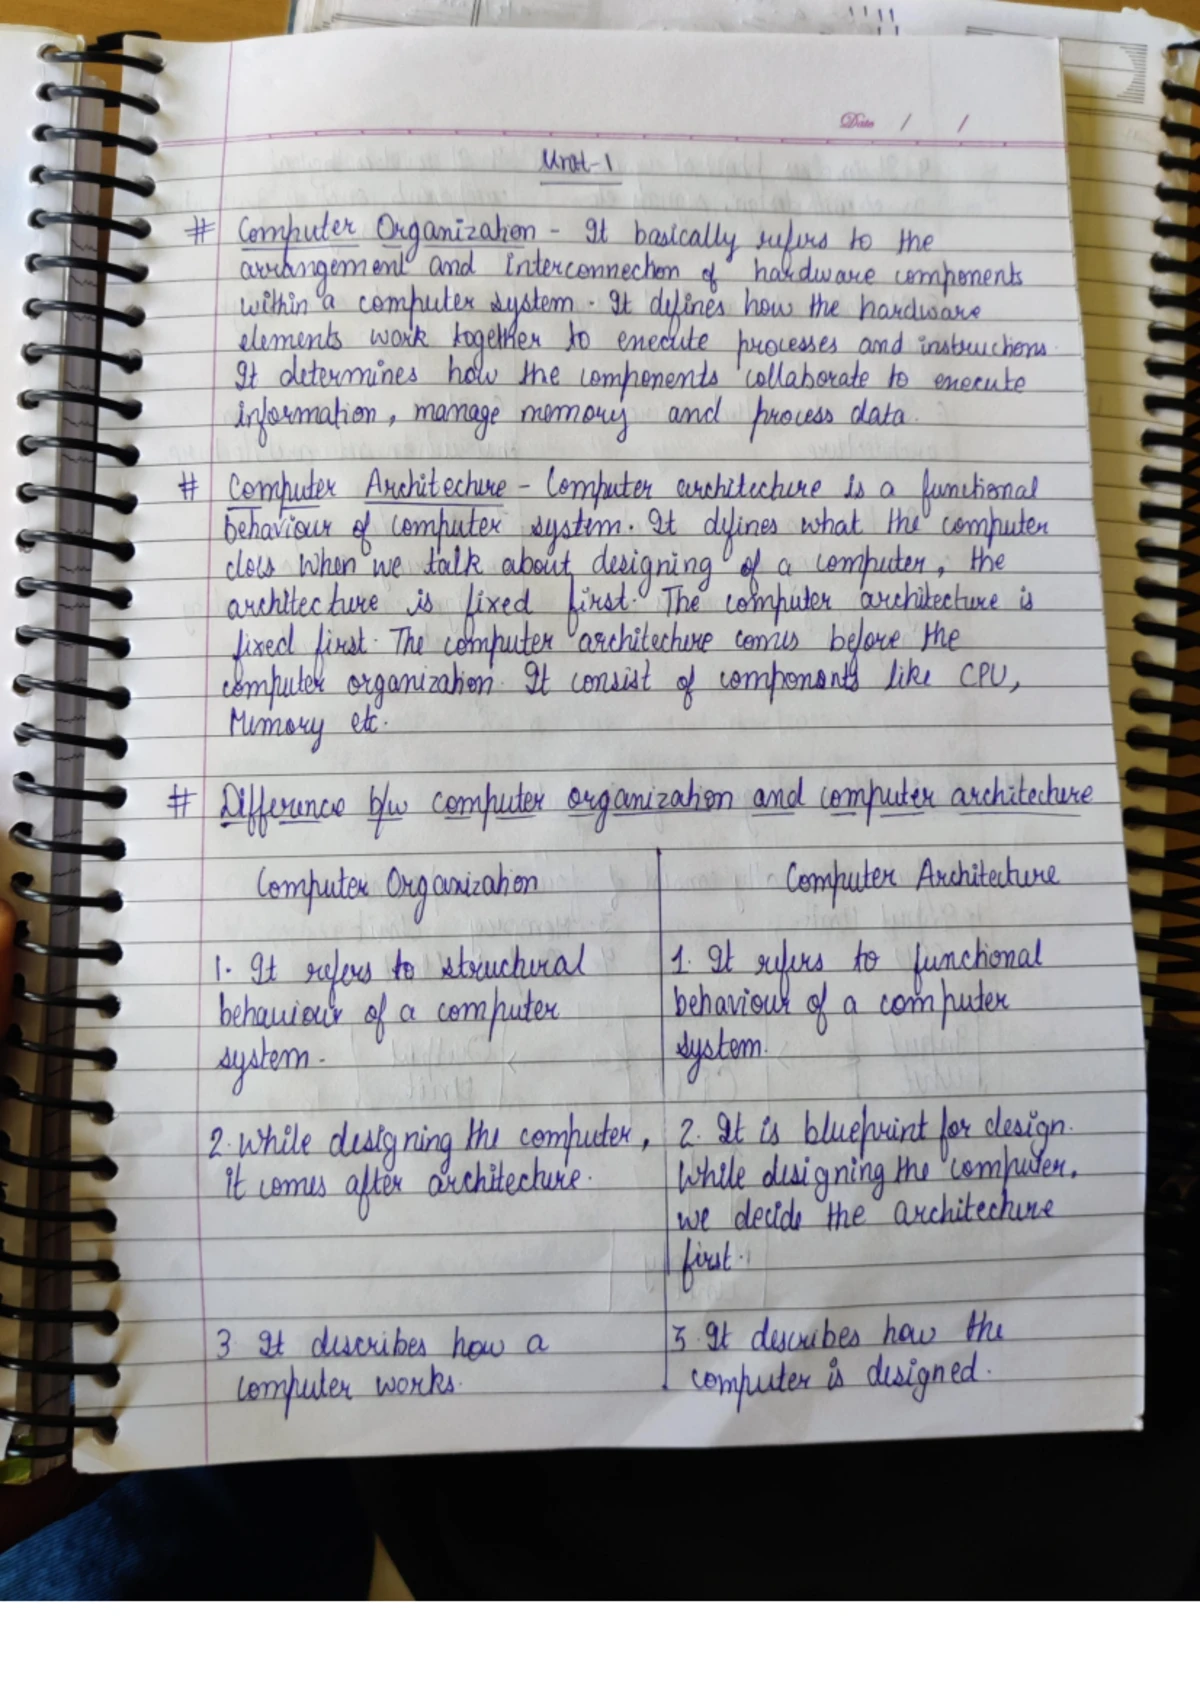 Date / /
Unit-1
# Computer Organization - It basically refers to the
arrangement and interconnection of hardware components
within a computer system. It defines how the hardware
elements work together to execute processes and instructions.
It determines how the components collaborate to execute
information, manage memory and process data.
# Computer Architecture - Computer architecture is a functional
behaviour of computer system. It defines what the computer
does when we talk about designing of a computer, the
architecture is fixed first. The computer architecture is
fixed first. The computer architecture comes before the
computer organization. It consist of components like CPU,
Memory etc.
# Difference b/w computer organization and computer architecture
Computer Organization
1. It refers to structural
behaviour of a computer
system.
2. While designing the computer,
it comes after architecture.
3. It describes how a
computer works.
Computer Architecture
1. It refers to functional
behaviour of a computer
system.
2. It is blueprint for design.
While designing the computer,
we decide the architecture
first.
3. It describes how the
computer is designed.